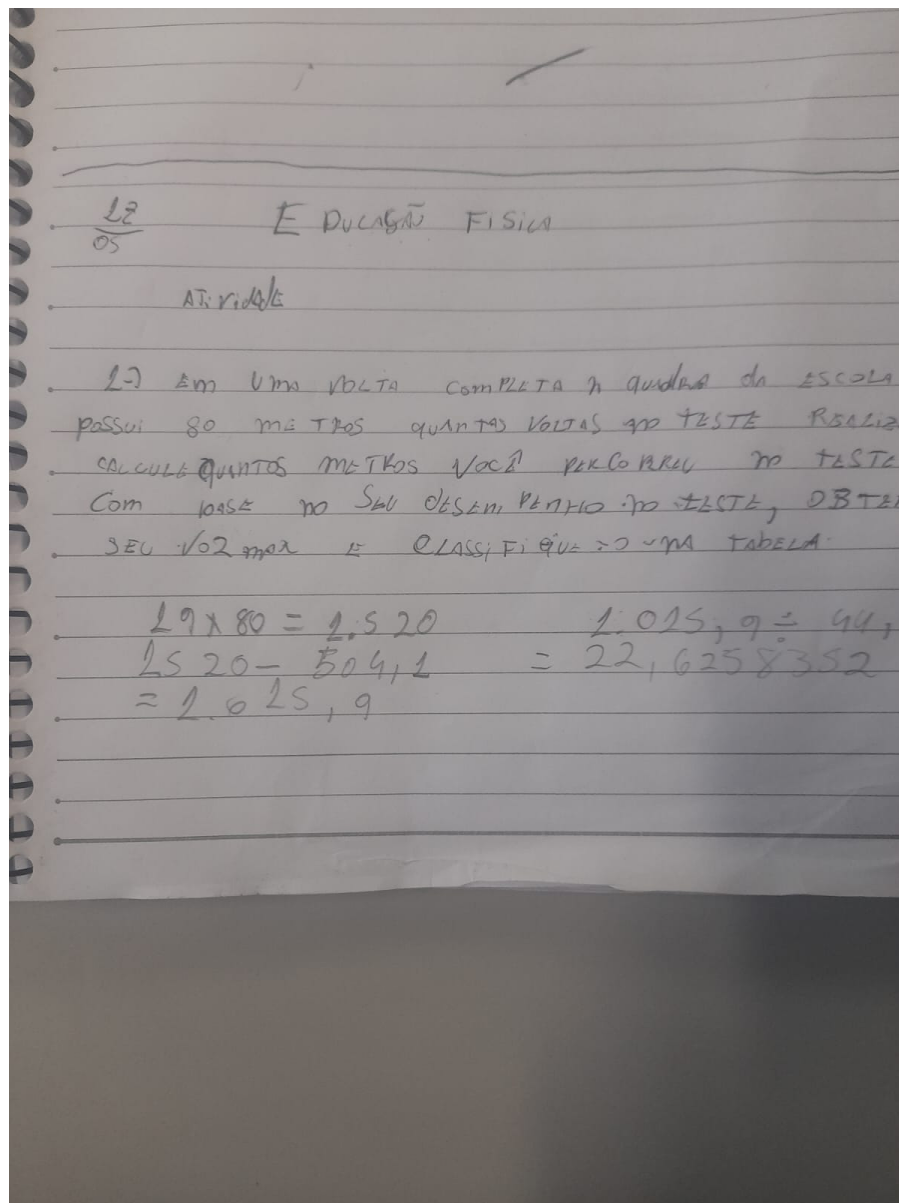 12
05
EDUCAÇÃO FISICA
ATividade
1-) Em Uma VOLTA COMPLETA A quadra da ESCOLA
possui 80 METROS quantas VOLTAS no TESTE REALIZ
CALCULE QUANTOS METROS VOCÊ PERCORREU no TESTE
Com BASE no SEU DESEMPENHO no TESTE, OBTE
SEU VO2 max E CLASSIFIQUE-O NA TABELA.
19x80 = 1.520
1520 - 504,1
= 1.015,9
1.015,9 ÷ 44,
= 22,6258352